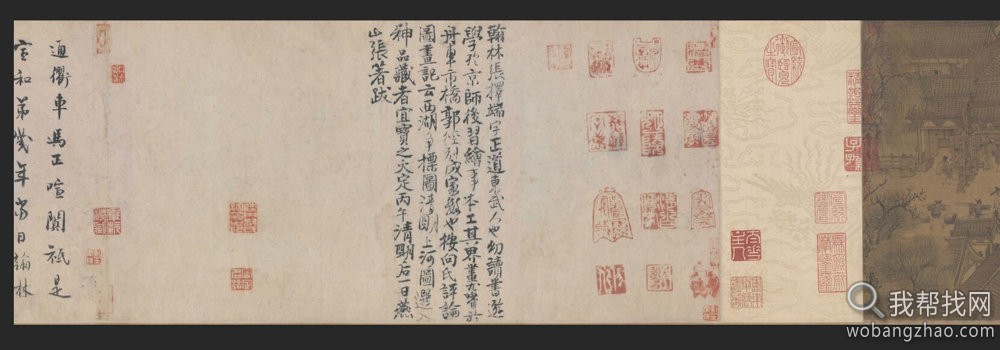 翰林張擇端字正道東武人也幼讀書遊
學於京師後習繪事本工其界畫尤嗜於
舟車市橋郭徑別成家數也按向氏評論
圖畫記云西湖爭標圖清明上河圖選入
神品藏者宜寶之大定丙午清明后一日燕
山張著跋
通衢車馬正喧闐祗是
宣和第幾年當日翰林
我帮找网
wobangzhao.com